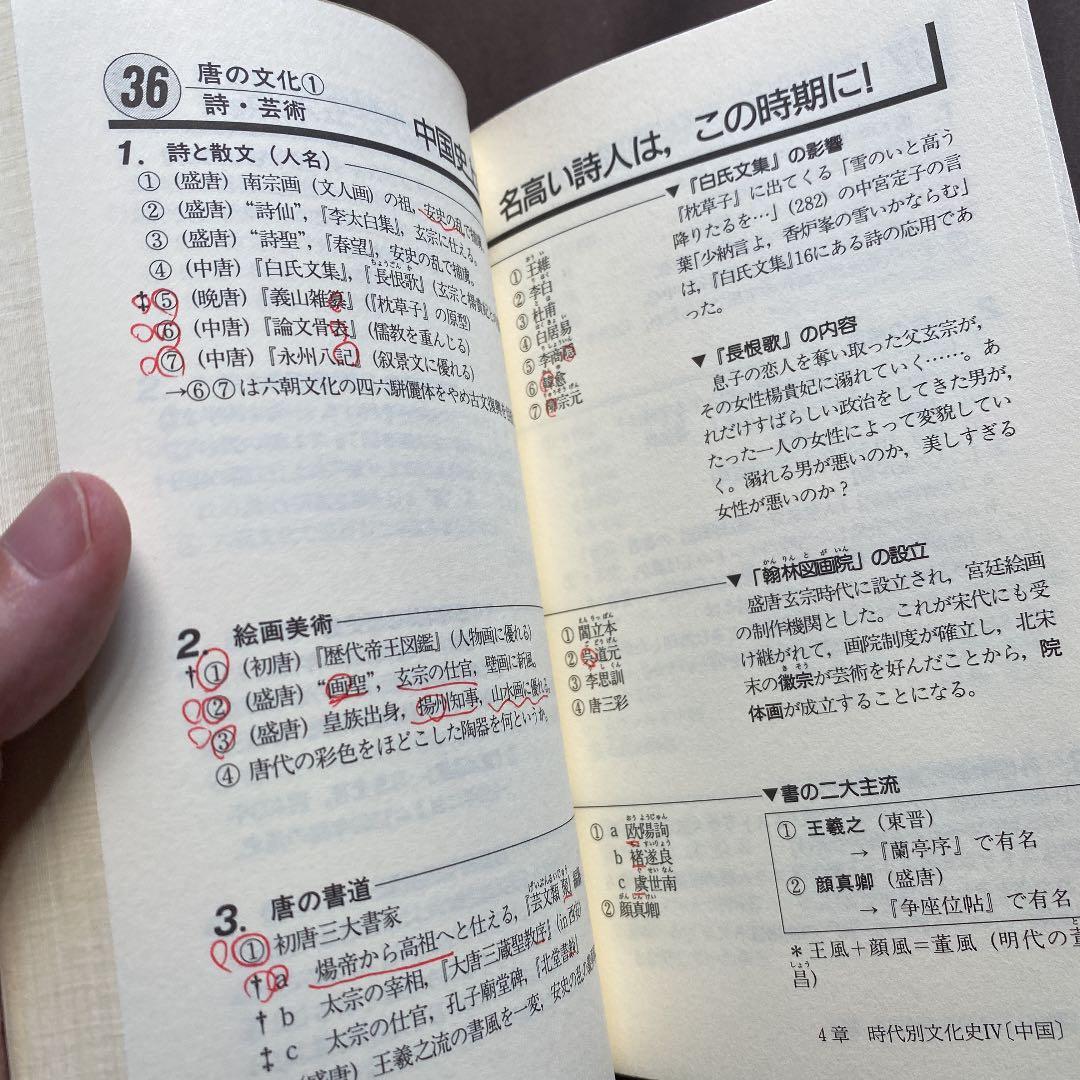 36 唐の文化①
詩・芸術
中国史
1. 詩と散文（人名）
①（盛唐）南宗画（文人画）の祖，安史の乱で捕虜。
②（盛唐）“詩仙”，『李太白集』，玄宗に仕える。
③（盛唐）“詩聖”，『春望』，安史の乱で捕虜。
④（中唐）『白氏文集』，『長恨歌』（玄宗と楊貴妃
ちょうごん か
‡⑤（晩唐）『義山雑纂』（『枕草子』の原型）
⑥（中唐）『論文骨表』（儒教を重んじる）
⑦（中唐）『永州八記』（叙景文に優れる）
→⑥⑦は六朝文化の四六駢儷体をやめ古文復興
2. 絵画美術
†①（初唐）『歴代帝王図鑑』（人物画に優れる）
②（盛唐）“画聖”，玄宗の仕官，壁画に新風。
③（盛唐）皇族出身，揚州知事，山水画に優れる。
④ 唐代の彩色をほどこした陶器を何というか。
3. 唐の書道
① 初唐三大書家
†a 煬帝から高祖へと仕える，『芸文類聚』編
げいもんるいじゅう
†b 太宗の宰相，『大唐三蔵聖教序』（in西安）
‡c 太宗の仕官，孔子廟堂碑，『北堂書鈔』
（盛唐）王羲之流の書風を一変，安史の乱
名高い詩人は，この時期に！
① 王維
② 李白
③ 杜甫
④ 白居易
⑤ 李商隠
⑥ 韓愈
⑦ 柳宗元
▼『白氏文集』の影響
『枕草子』に出てくる「雪のいと高う
降りたるを…」（282）の中宮定子の言
葉「少納言よ，香炉峯の雪いかならむ」
は，『白氏文集』16にある詩の応用であ
った。
▼『長恨歌』の内容
息子の恋人を奪い取った父玄宗が，
その女性楊貴妃に溺れていく……。あ
れだけすばらしい政治をしてきた男が，
たった一人の女性によって変貌してい
く。溺れる男が悪いのか，美しすぎる
女性が悪いのか？
① 閻立本
② 呉道元
③ 李思訓
④ 唐三彩
▼「翰林図画院」の設立
かんりんとがいん
盛唐玄宗時代に設立され，宮廷絵画
の制作機関とした。これが宋代にも受
け継がれて，画院制度が確立し，北宋
末の徽宗が芸術を好んだことから，院
きそう
体画が成立することになる。
① a 欧陽詢
b 褚遂良
c 虞世南
② 顔真卿
▼書の二大主流
① 王羲之（東晋）
→『蘭亭序』で有名
② 顔真卿（盛唐）
→『争座位帖』で有名
＊王風＋顔風＝董風（明代の董
昌）
しょう
4章 時代別文化史Ⅳ〔中国〕